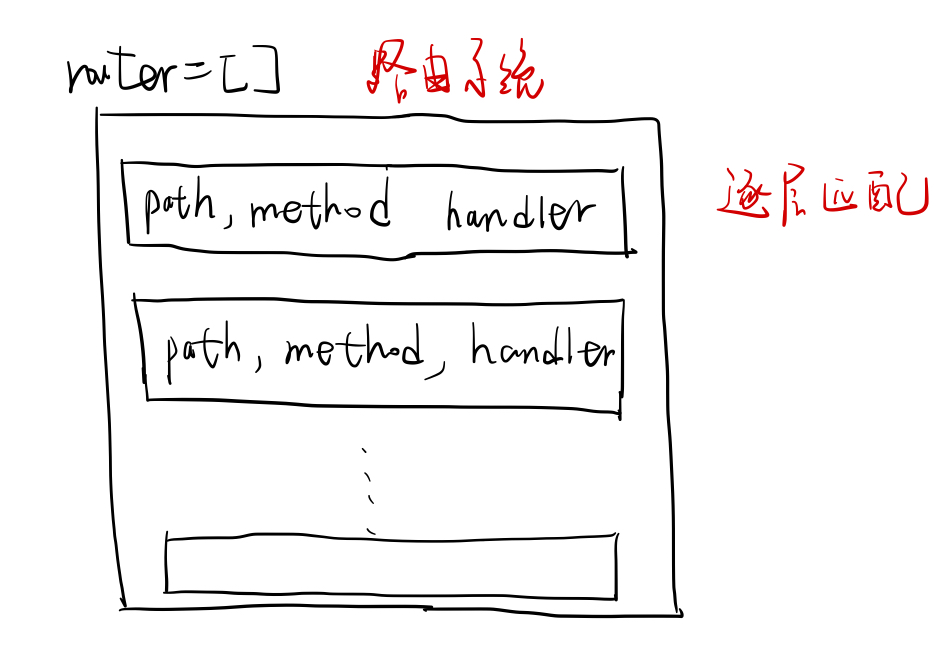 router=[] 路由系统
path, method handler
逐层匹配
path, method, handler